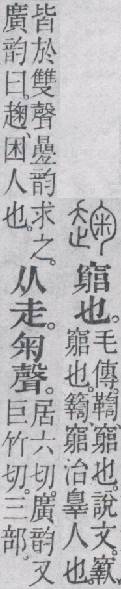 竆也。
毛傳、鞫、竆也。說文、
竆也。𥷚、竆治辠人也。
皆於雙聲曡韵求之。
廣韵曰。趜、困人也。
从走。匊聲。
居六切。廣韵又
巨竹切。三部。